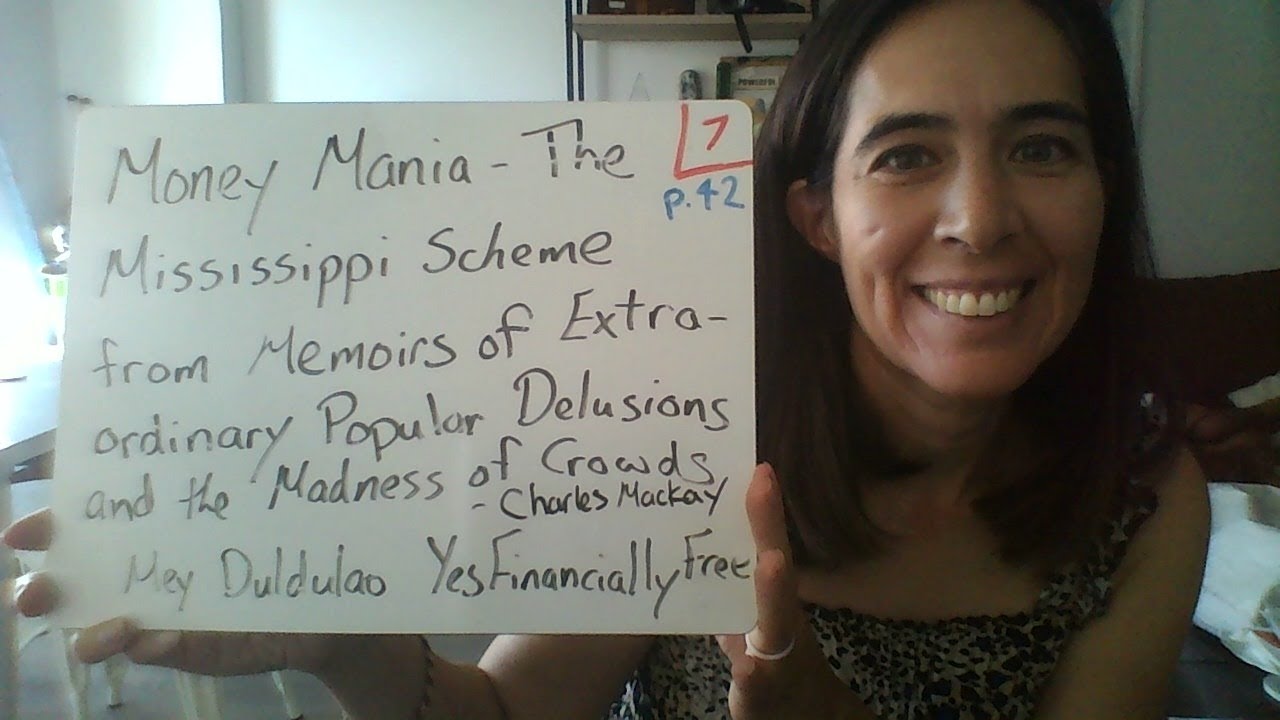 POWERFUL
Money Mania - The
7
p.42
Mississippi Scheme
from Memoirs of Extra-
ordinary Popular Delusions
and the Madness of Crowds
- Charles Mackay
Mey Duldulao YesFinanciallyFree